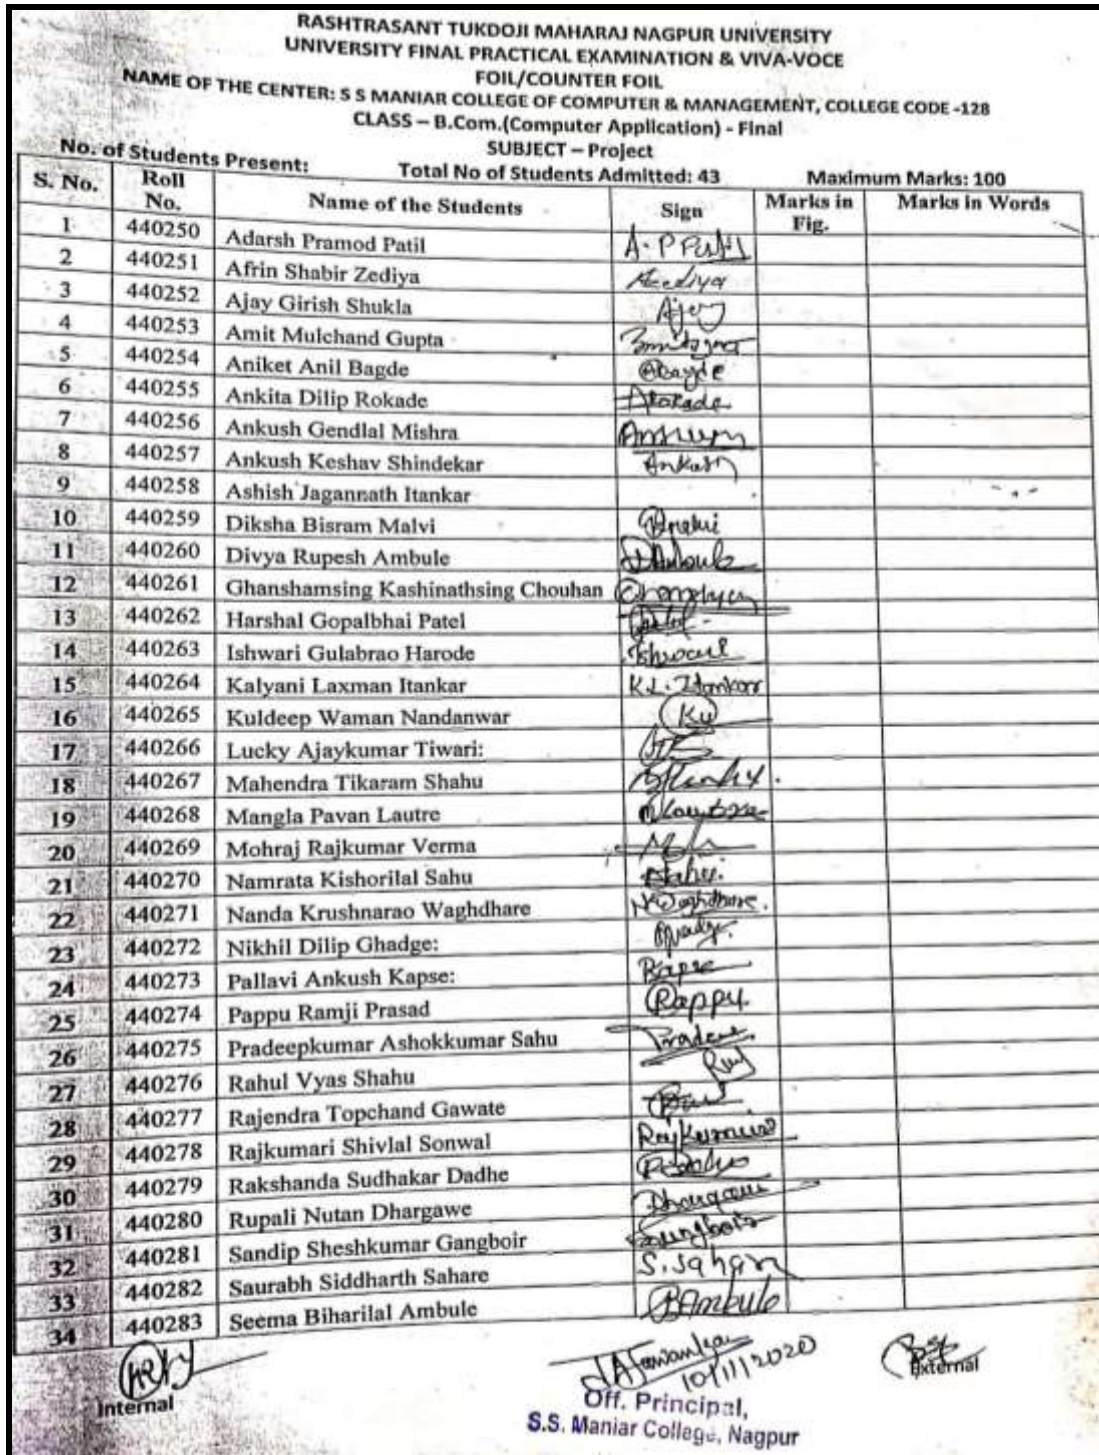 RASHTRASANT TUKDOJI MAHARAJ NAGPUR UNIVERSITY
UNIVERSITY FINAL PRACTICAL EXAMINATION & VIVA-VOCE
FOIL/COUNTER FOIL
NAME OF THE CENTER: S S MANIAR COLLEGE OF COMPUTER & MANAGEMENT, COLLEGE CODE -128
CLASS – B.Com.(Computer Application) - Final
SUBJECT – Project
No. of Students Present: Total No of Students Admitted: 43 Maximum Marks: 100
S. No. Roll No. Name of the Students Sign Marks in Fig. Marks in Words
1 440250 Adarsh Pramod Patil A. P Patil
2 440251 Afrin Shabir Zediya
3 440252 Ajay Girish Shukla Ajay
4 440253 Amit Mulchand Gupta
5 440254 Aniket Anil Bagde
6 440255 Ankita Dilip Rokade ARokade
7 440256 Ankush Gendlal Mishra
8 440257 Ankush Keshav Shindekar Ankush
9 440258 Ashish Jagannath Itankar
10 440259 Diksha Bisram Malvi
11 440260 Divya Rupesh Ambule
12 440261 Ghanshamsing Kashinathsing Chouhan
13 440262 Harshal Gopalbhai Patel
14 440263 Ishwari Gulabrao Harode
15 440264 Kalyani Laxman Itankar K.L. Itankar
16 440265 Kuldeep Waman Nandanwar
17 440266 Lucky Ajaykumar Tiwari:
18 440267 Mahendra Tikaram Shahu
19 440268 Mangla Pavan Lautre
20 440269 Mohraj Rajkumar Verma
21 440270 Namrata Kishorilal Sahu
22 440271 Nanda Krushnarao Waghdhare N.Waghdhare.
23 440272 Nikhil Dilip Ghadge:
24 440273 Pallavi Ankush Kapse:
25 440274 Pappu Ramji Prasad Pappu
26 440275 Pradeepkumar Ashokkumar Sahu
27 440276 Rahul Vyas Shahu
28 440277 Rajendra Topchand Gawate
29 440278 Rajkumari Shivlal Sonwal Rajkumari
30 440279 Rakshanda Sudhakar Dadhe
31 440280 Rupali Nutan Dhargawe
32 440281 Sandip Sheshkumar Gangboir
33 440282 Saurabh Siddharth Sahare
34 440283 Seema Biharilal Ambule
10/11/2020
Internal Off. Principal, External
S.S. Maniar College, Nagpur